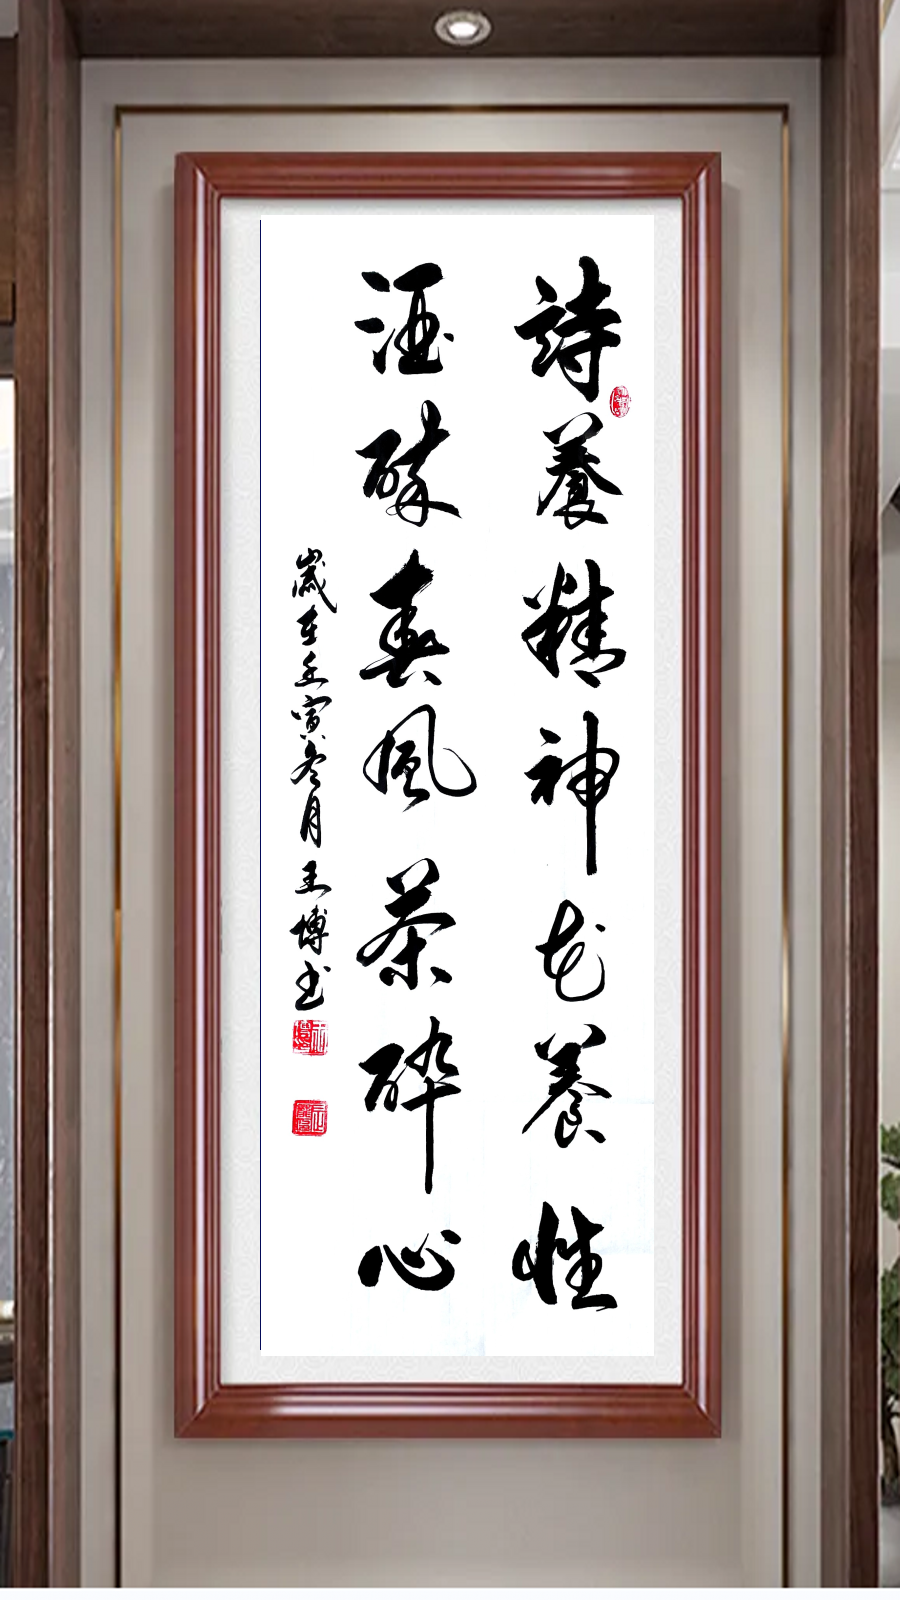 詩養精神花養性
酒醉春風茶醉心
歲在壬寅冬月王博書